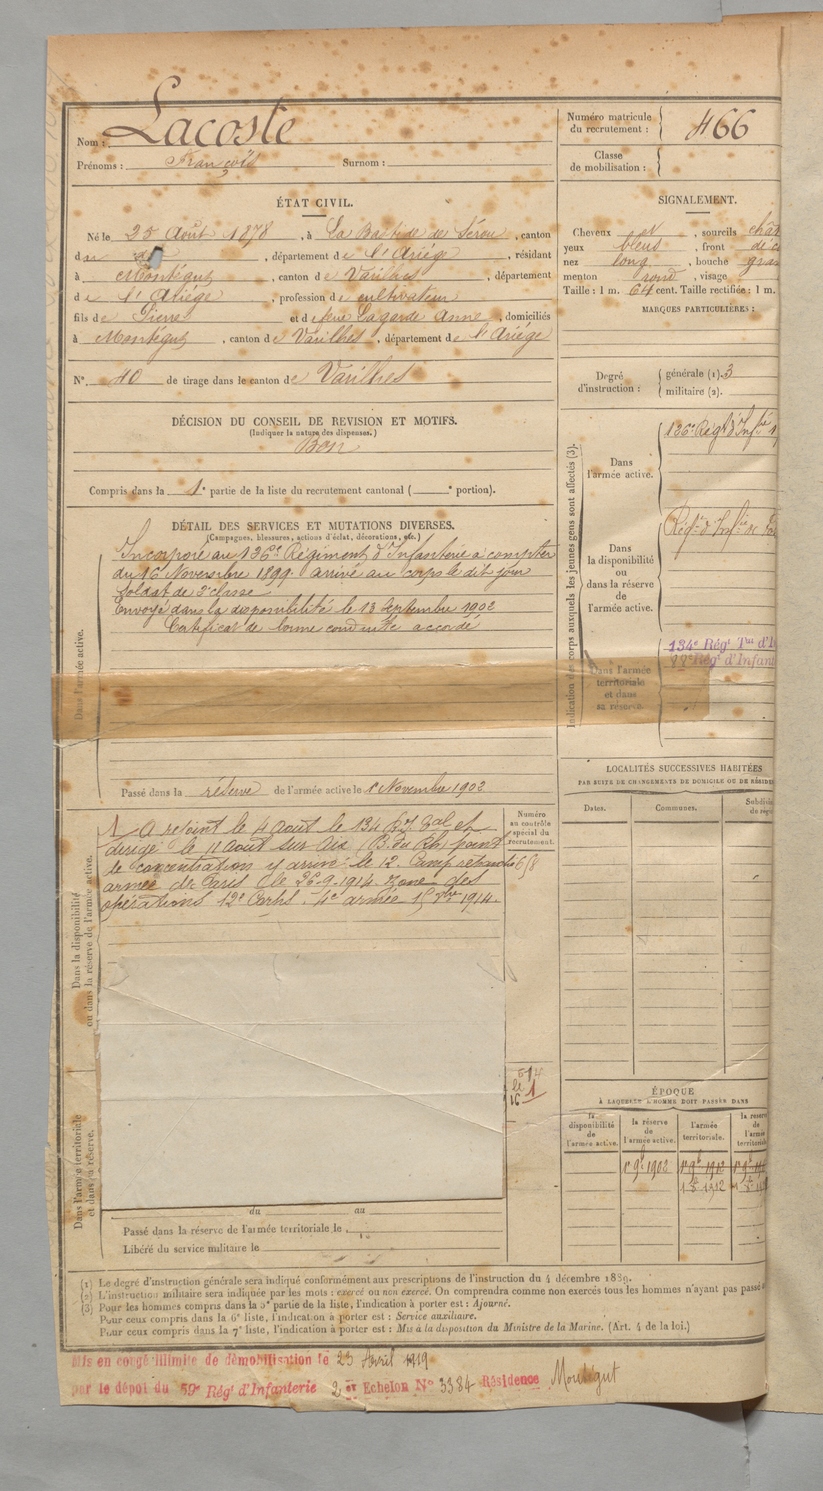 Nom : Lacoste
Prénoms : François Surnom :
ÉTAT CIVIL.
Né le 25 Août 1878, à La Bastide de Sérou, canton
du dit, département de l'Ariège, résidant
à Montégut, canton de Varilhes, département
de l'Ariège, profession de cultivateur
fils de Pierre et de feue Lagarde Anne, domiciliés
à Montégut, canton de Varilhes, département de l'Ariège
N° 40 de tirage dans le canton de Varilhes
DÉCISION DU CONSEIL DE REVISION ET MOTIFS.
(Indiquer la nature des dispenses.)
Bon
Compris dans la 1e partie de la liste du recrutement cantonal ( e portion).
DÉTAIL DES SERVICES ET MUTATIONS DIVERSES.
(Campagnes, blessures, actions d'éclat, décorations, etc.)
Dans l'armée active.
Incorporé au 136e Régiment d'Infanterie à compter
du 16 Novembre 1899. arrivé au corps le dit jour
Soldat de 2e classe
Envoyé dans la disponibilité le 13 Septembre 1902
Certificat de bonne conduite accordé
Passé dans la réserve de l'armée active le 1er Novembre 1902
Dans la disponibilité
ou dans la réserve de l'armée active.
A rejoint le 4 Août le 134 R.I. Tal et
dirigé le 11 Août sur Aix (B. du Rh) point
de concentration y arrivé le 12. Camp retranché
armée de Paris le 26-9-1914. Zone des
opérations 12e Corps. 4e armée 15 9bre 1914.
Numéro
au contrôle
spécial du
recrutement.
658
Dans l'armée territoriale
et dans sa réserve.
du au
Passé dans la réserve de l'armée territoriale le
Libéré du service militaire le
Numéro matricule
du recrutement : 466
Classe
de mobilisation :
SIGNALEMENT.
Cheveux et, sourcils chât
yeux bleus, front déc
nez long, bouche gran
menton rond, visage
Taille : 1 m. 64 cent. Taille rectifiée : 1 m.
MARQUES PARTICULIÈRES :
Degré
d'instruction :
générale (1). 3
militaire (2).
Indication des corps auxquels les jeunes gens sont affectés (3).
Dans
l'armée active.
136e Régt d'Infie
Dans
la disponibilité
ou
dans la réserve
de
l'armée active.
Régt d'Infie
Dans l'armée
territoriale
et dans
sa réserve.
134e Régt Tal d'I
Régt d'Infant
LOCALITÉS SUCCESSIVES HABITÉES
PAR SUITE DE CHANGEMENTS DE DOMICILE OU DE RÉSIDE
Dates. Communes. Subdivi
de régi
ÉPOQUE
À LAQUELLE L'HOMME DOIT PASSER DANS
la
disponibilité
de
l'armée active.
la réserve
de
l'armée active.
l'armée
territoriale.
la réserve
de
l'armée
territoriale
1er 9b 1902 1er 9b 1912 1er 9b
1 8b 1912
(1) Le degré d'instruction générale sera indiqué conformément aux prescriptions de l'instruction du 4 décembre 1889.
(2) L'instruction militaire sera indiquée par les mots : exercé ou non exercé. On comprendra comme non exercés tous les hommes n'ayant pas passé
(3) Pour les hommes compris dans la 5e partie de la liste, l'indication à porter est : Ajourné.
Pour ceux compris dans la 6e liste, l'indication à porter est : Service auxiliaire.
Pour ceux compris dans la 7e liste, l'indication à porter est : Mis à la disposition du Ministre de la Marine. (Art. 4 de la loi.)
Mis en congé illimité de démobilisation le 23 Avril 1919
par le dépôt du 59e Régt d'Infanterie 2e Echelon N° 3384 Résidence Montégut